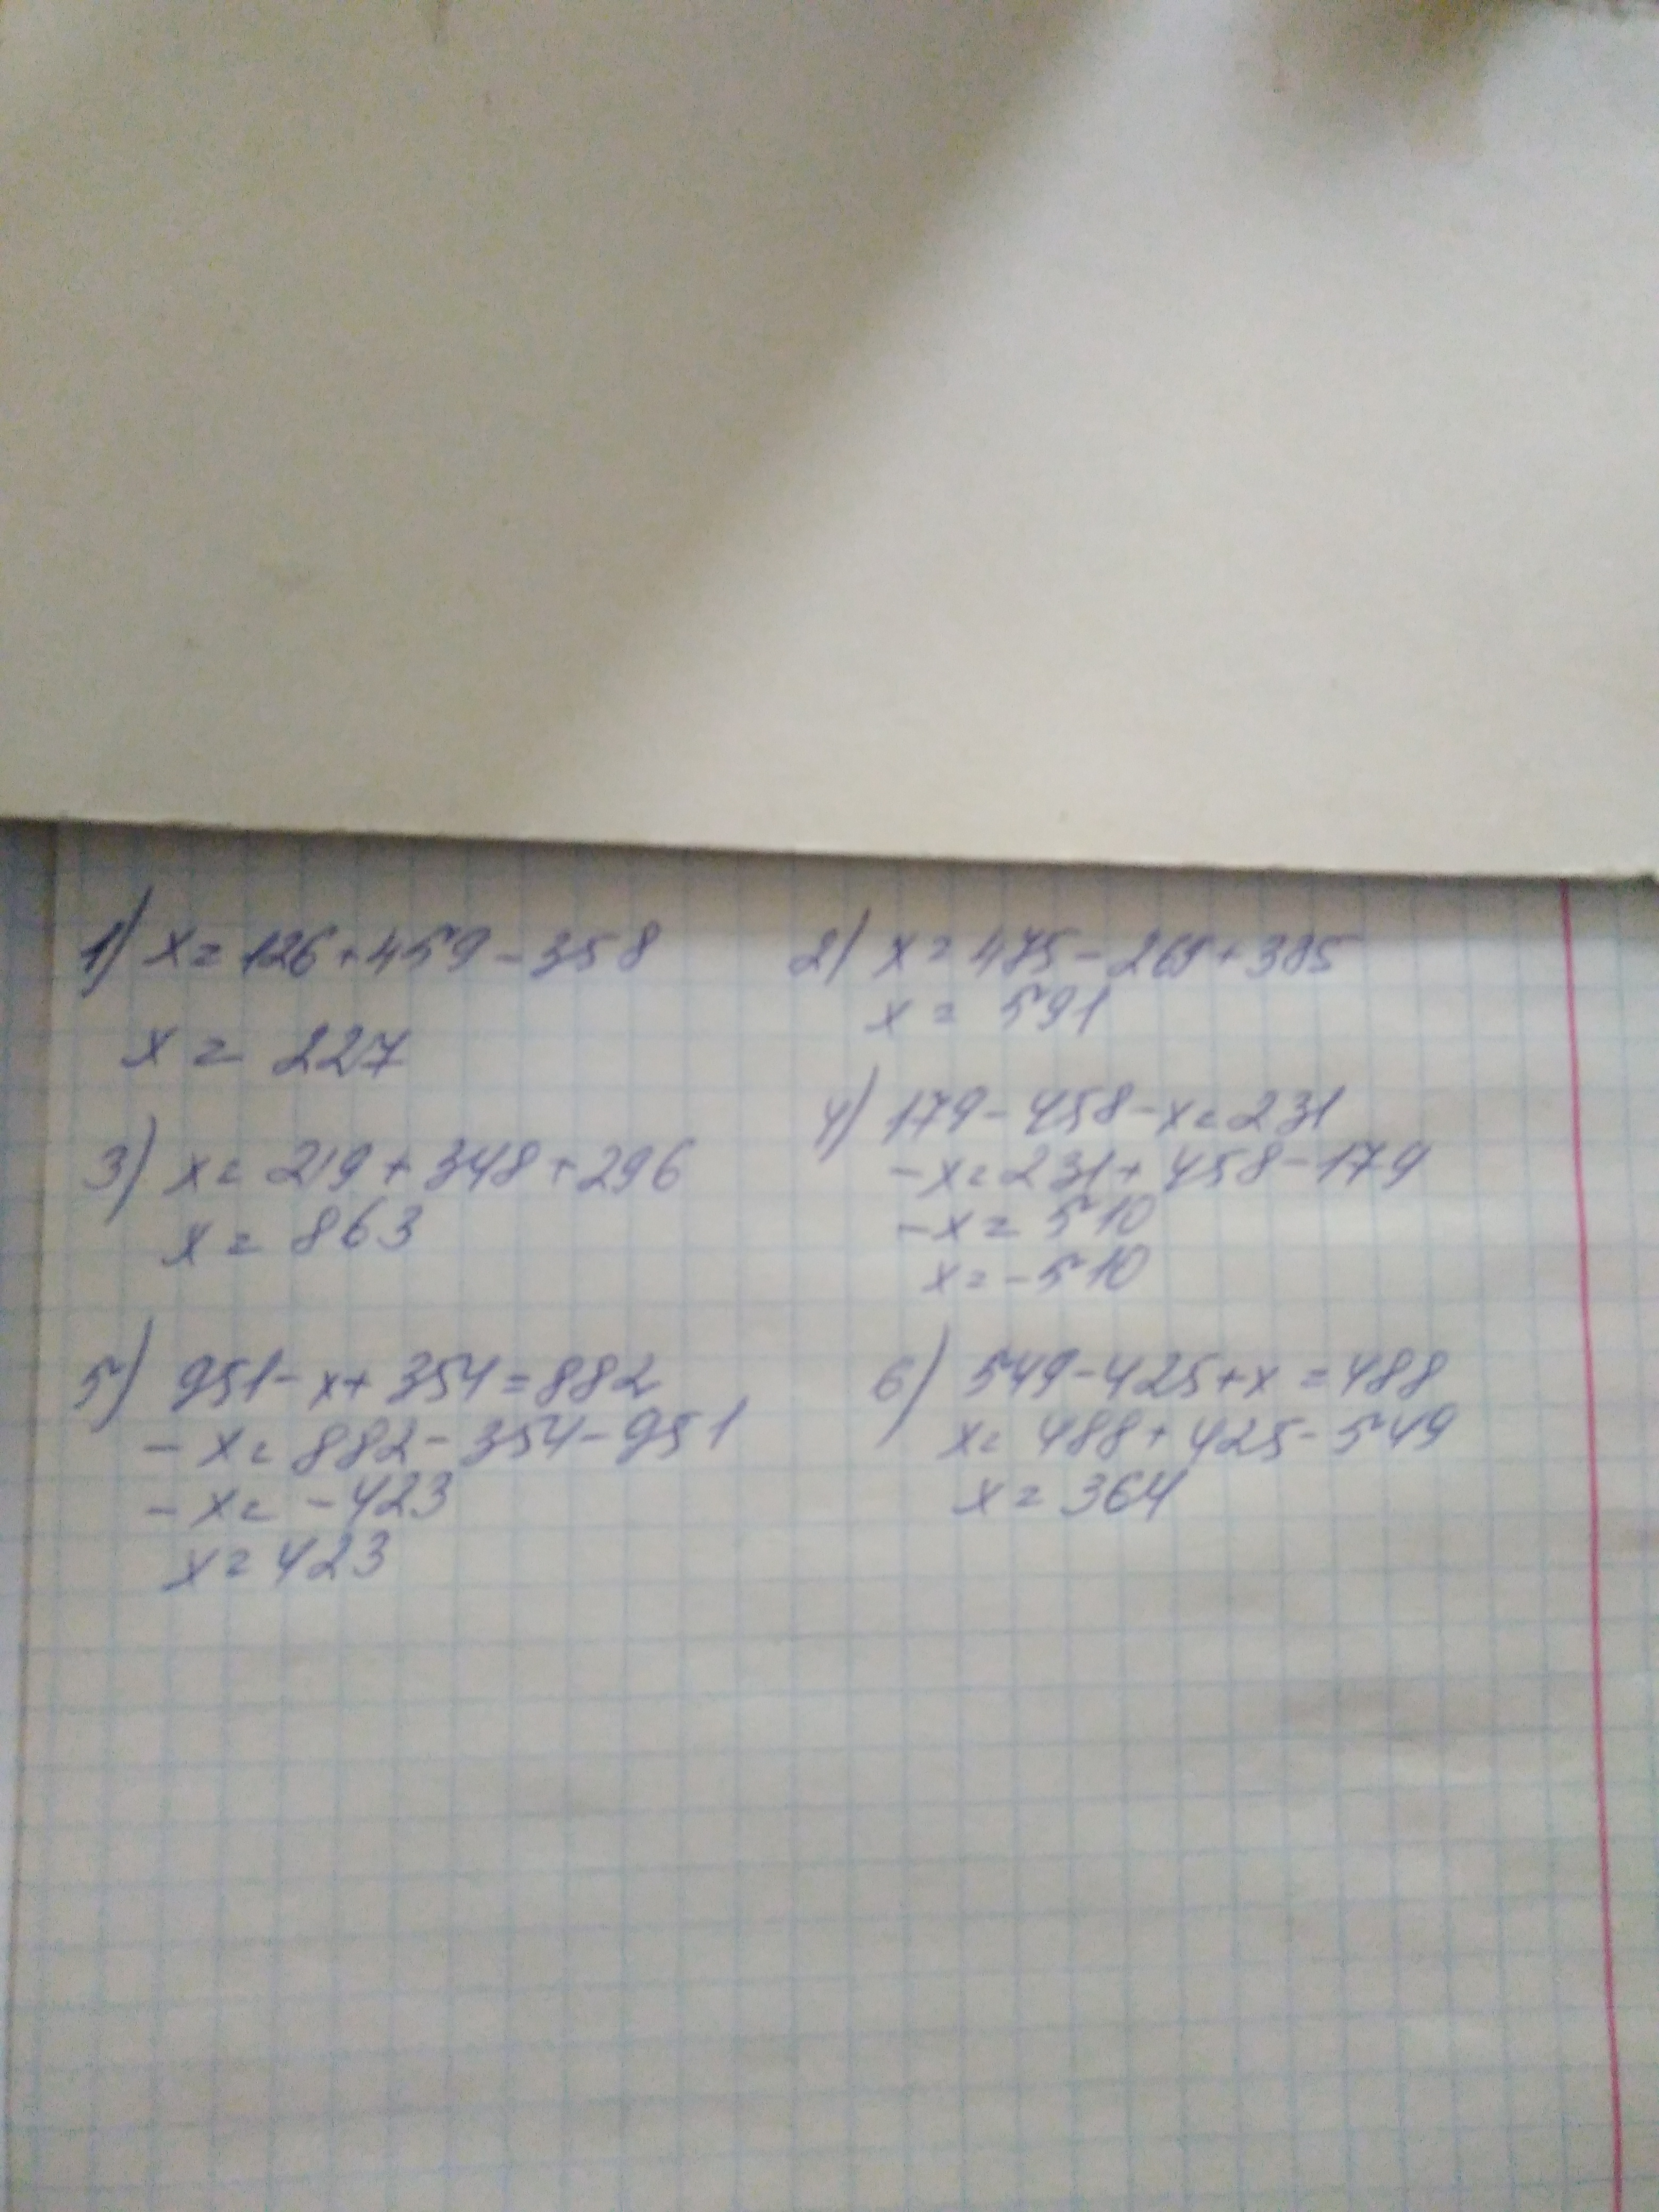 1) x = 126 + 459 - 358
x = 227
2) x = 475 - 269 + 385
x = 591
3) x = 219 + 348 + 296
x = 863
4) 179 - 458 - x = 231
-x = 231 + 458 - 179
-x = 510
x = -510
5) 951 - x + 354 = 882
-x = 882 - 354 - 951
-x = -423
x = 423
6) 549 - 425 + x = 488
x = 488 + 425 - 549
x = 364